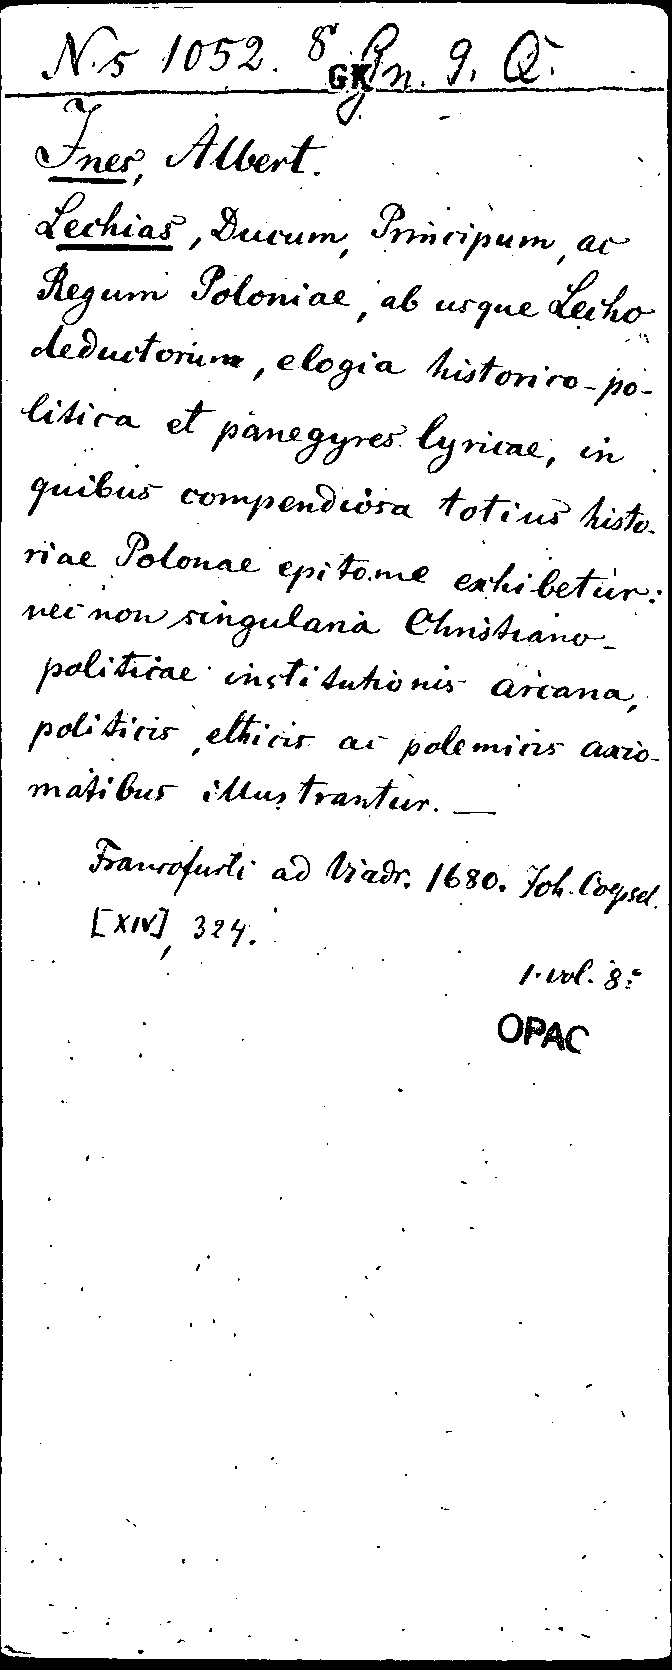 N.5 1052. 8 Gn. 9. Q.
GK
Ines, Albert.
Lechias, Ducum, Principum, ac
Regum Poloniae, ab usque Lecho
deductorum, elogia historico-po-
litica et panegyres lyricae, in
quibus compendiosa totius histo-
riae Polonae epitome exhibetur:
nec non singularia Christiano-
politicae institutionis arcana,
politicis, ethicis ac polemicis axio-
matibus illustrantur. —
Francofurti ad Viadr. 1680. Joh. Coepsel.
[XIV], 324.
1. vol. 8:º
OPAC